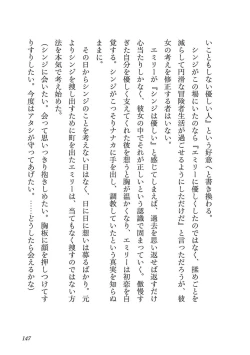 いこともしない優しい人」という好意へと書き換わる。
　シンジがこの場にいたのなら「エミリーに優しくしたのではなく、揉めごとを
減らして円滑な冒険者生活が過ごせるようにしただけだ」と言っただろうが、彼
女の考えを修正する者はいない。
　エミリーが「シンジは優しい」と感じてしまえば、過去を思い返せば返すだけ
心当たりしかなく、彼女の中でそれが正しいという認識で固まっていく。傲慢す
ぎた自分を優しく支えてくれた彼を想うと胸が温かくなり、エミリーは初恋を自
覚する。シンジがこっそりナナカに手を出し、調教していたという真実を知らぬ
ままに。
　その日からシンジのことを考えない日はなく、日に日に想いは募るばかり。元
よりシンジを捜し出すために町を出たエミリーは、当てもなく捜すのではない方
法を本気で考え始めた。
（シンジに会いたい。会って思いっきり抱きしめたい。胸板に顔を押しつけてす
りすりしたい。今度はアタシが守ってあげたい。……どうしたら会えるかな）
147